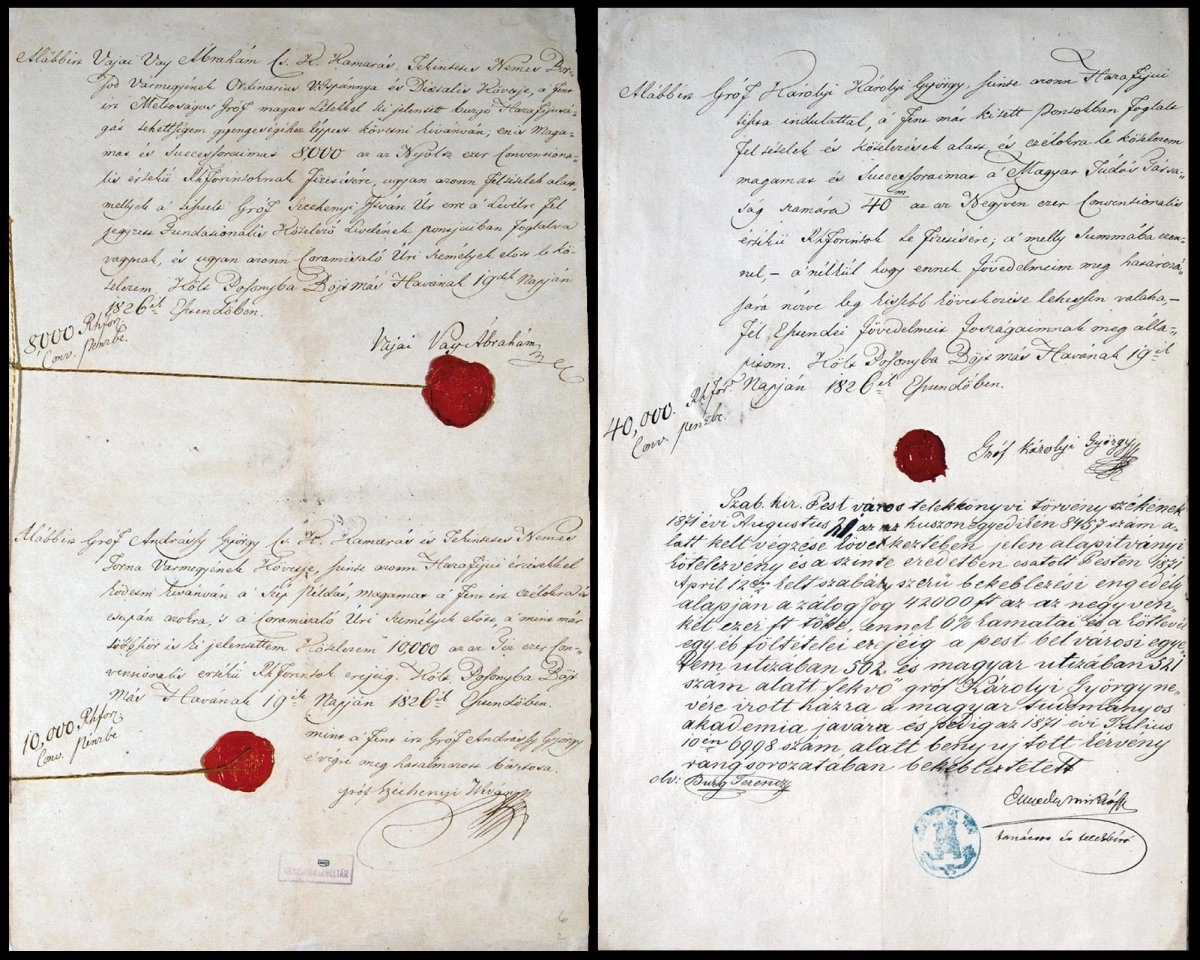 Alábbirt Vajai Vay Ábrahám Cs. K. Kamarás, Tekintetes Nemes Bor-
sod Vármegyének Ordinarius V. Ispánnya és Dicsalis Követje, a fent
irt Méltóságos Gróf magas Lélekkel ki jelentett buzgó Hazafijusá-
gát tehettségem gyengeségihez képest követni kivánván; én is Maga-
mat és Successoraimat 8,000 az az Nyóltz ezer Conventioná-
lis értékű Rhforintoknak fizetésére, ugyan azonn feltételek alatt,
mellyek a tisztelt Gróf Széchenyi István Úr erre a Levélre fel
jegyzett Fundationalis Kötelező Levelének pontjaiban foglalva
vagynak, és ugyan azonn Coramisaló Úri Személyek előtt le kö-
telezem. Költ Posonyba Böjt más Havának 19dik Napján
1826ik Esztendőben.
8,000 Rhfor.
Conv. pénzbe.
Vajai Vay Ábrahám
Alábbirt Gróf Andrássy György Cs. K. Kamarás és Tekintetes Nemes
Torna Vármegyének Követje, szinte azonn Hazafijui érzésekkel
követni kivánván a szép példát, magamat a fent irt czélokra és
csupán azokra, is a Coramisaló Úri Személyek előtt, a mint már
többször is ki jelentettem Kötelezem 10,000 az az Tíz ezer Con-
ventionális értékű Rhforintok erejéig. Költ Posonyba Böjt
más Havának 19ik Napján 1826ik Esztendőben.
10,000 Rhfor.
Conv. Pénzbe
mint a fent irt Gróf Andrássy György
végre meg hatalmazott bártsova.
gróf Széchenyi István
LEVÉLTÁR
6
Alábbirt Gróf Károlyi Károlyi György, szinte azonn Hazafijui
tiszta indulattal, a fent már kitett Pontokban foglalt
fel tételek és kötelezések alatt és czélokra le kötelezem
magamat és Successoraimat a Magyar Tudós Társa-
ság számára 40m az az Negyven ezer Conventionalis
értékű Rhforintok le fizetésére; a melly Summába ezen-
nel, — a nélkül hogy ennek Jövedelmeim meg határozá-
sára nézve leg kissebb következése lehessen valaha, —
fél Esztendei Jövedelmeit Jószágaimnak meg álla-
pítom. Költ Posonyba Böjt más Havának 19ik
Napján 1826ik Esztendőben.
40,000. Rhfor.
Conv. pénzbe.
Gróf Károlyi György
Szab. kir. Pest város telekkönyvi törvény székének
1871 évi Augustus 21 az az huszonegyediken 8457 szám a-
latt kelt végzése következtében jelen alapítványi
kötelezvény és a szinte eredetben csatolt Pesten 1871
April 12én kelt szabályszerü bekeblezési engedély
alapján a zálogjog 42000 ft az az negyven-
két ezer ft tőke, ennek 6% kamatai és a kötlevél
egyéb föltételei erejéig a pest belvárosi egye-
tem utczában 502. és magyar utczában 521
szám alatt fekvő gróf Károlyi György ne-
vére irott házra a magyar tudományos
akademia javára és pedig az 1871 évi Julius
10én 6998 szám alatt benyujtott kérvény
rangsorozatában bekebleztetett
olv: Burg Ferencz
tanácsos és telekbiró